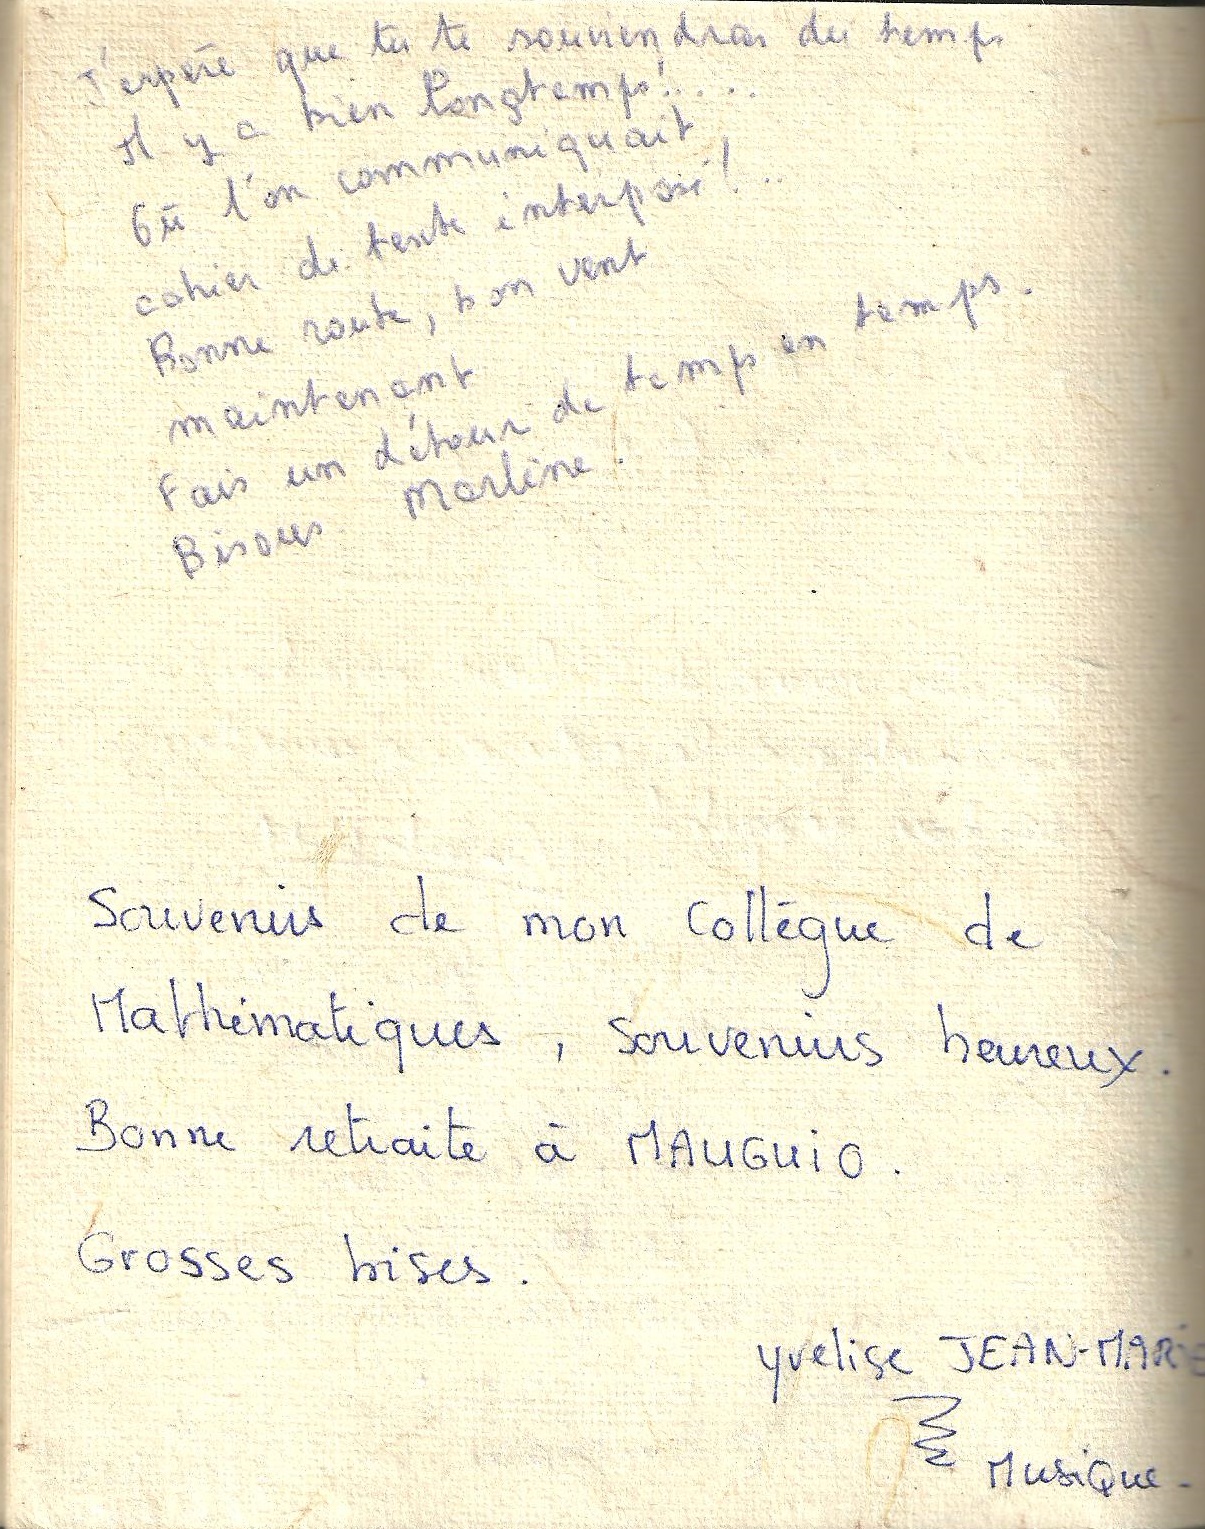 J'espère que tu te souviendras du temps
Il y a bien longtemps!....
Où l'on communiquait
cahier de texte interposé!..
Bonne route, bon vent
maintenant
Fais un détour de temps en temps.
Bisous. Marlène.
Souvenirs de mon Collègue de
Mathématiques, Souvenirs heureux.
Bonne retraite à MAUGUiO.
Grosses bises.
Yvelise JEAN-MARiE
MusiQue-